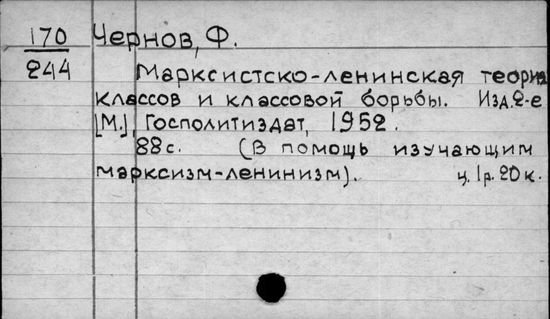 170 Чернов, Ф.
244 Марксистско-ленинская теория
классов и классовой борьбы. Изд.2-е
[М.], Госполитиздат, 1952.
88с. (В помощь изучающим
марксизм-ленинизм). ц. 1р. 20к.